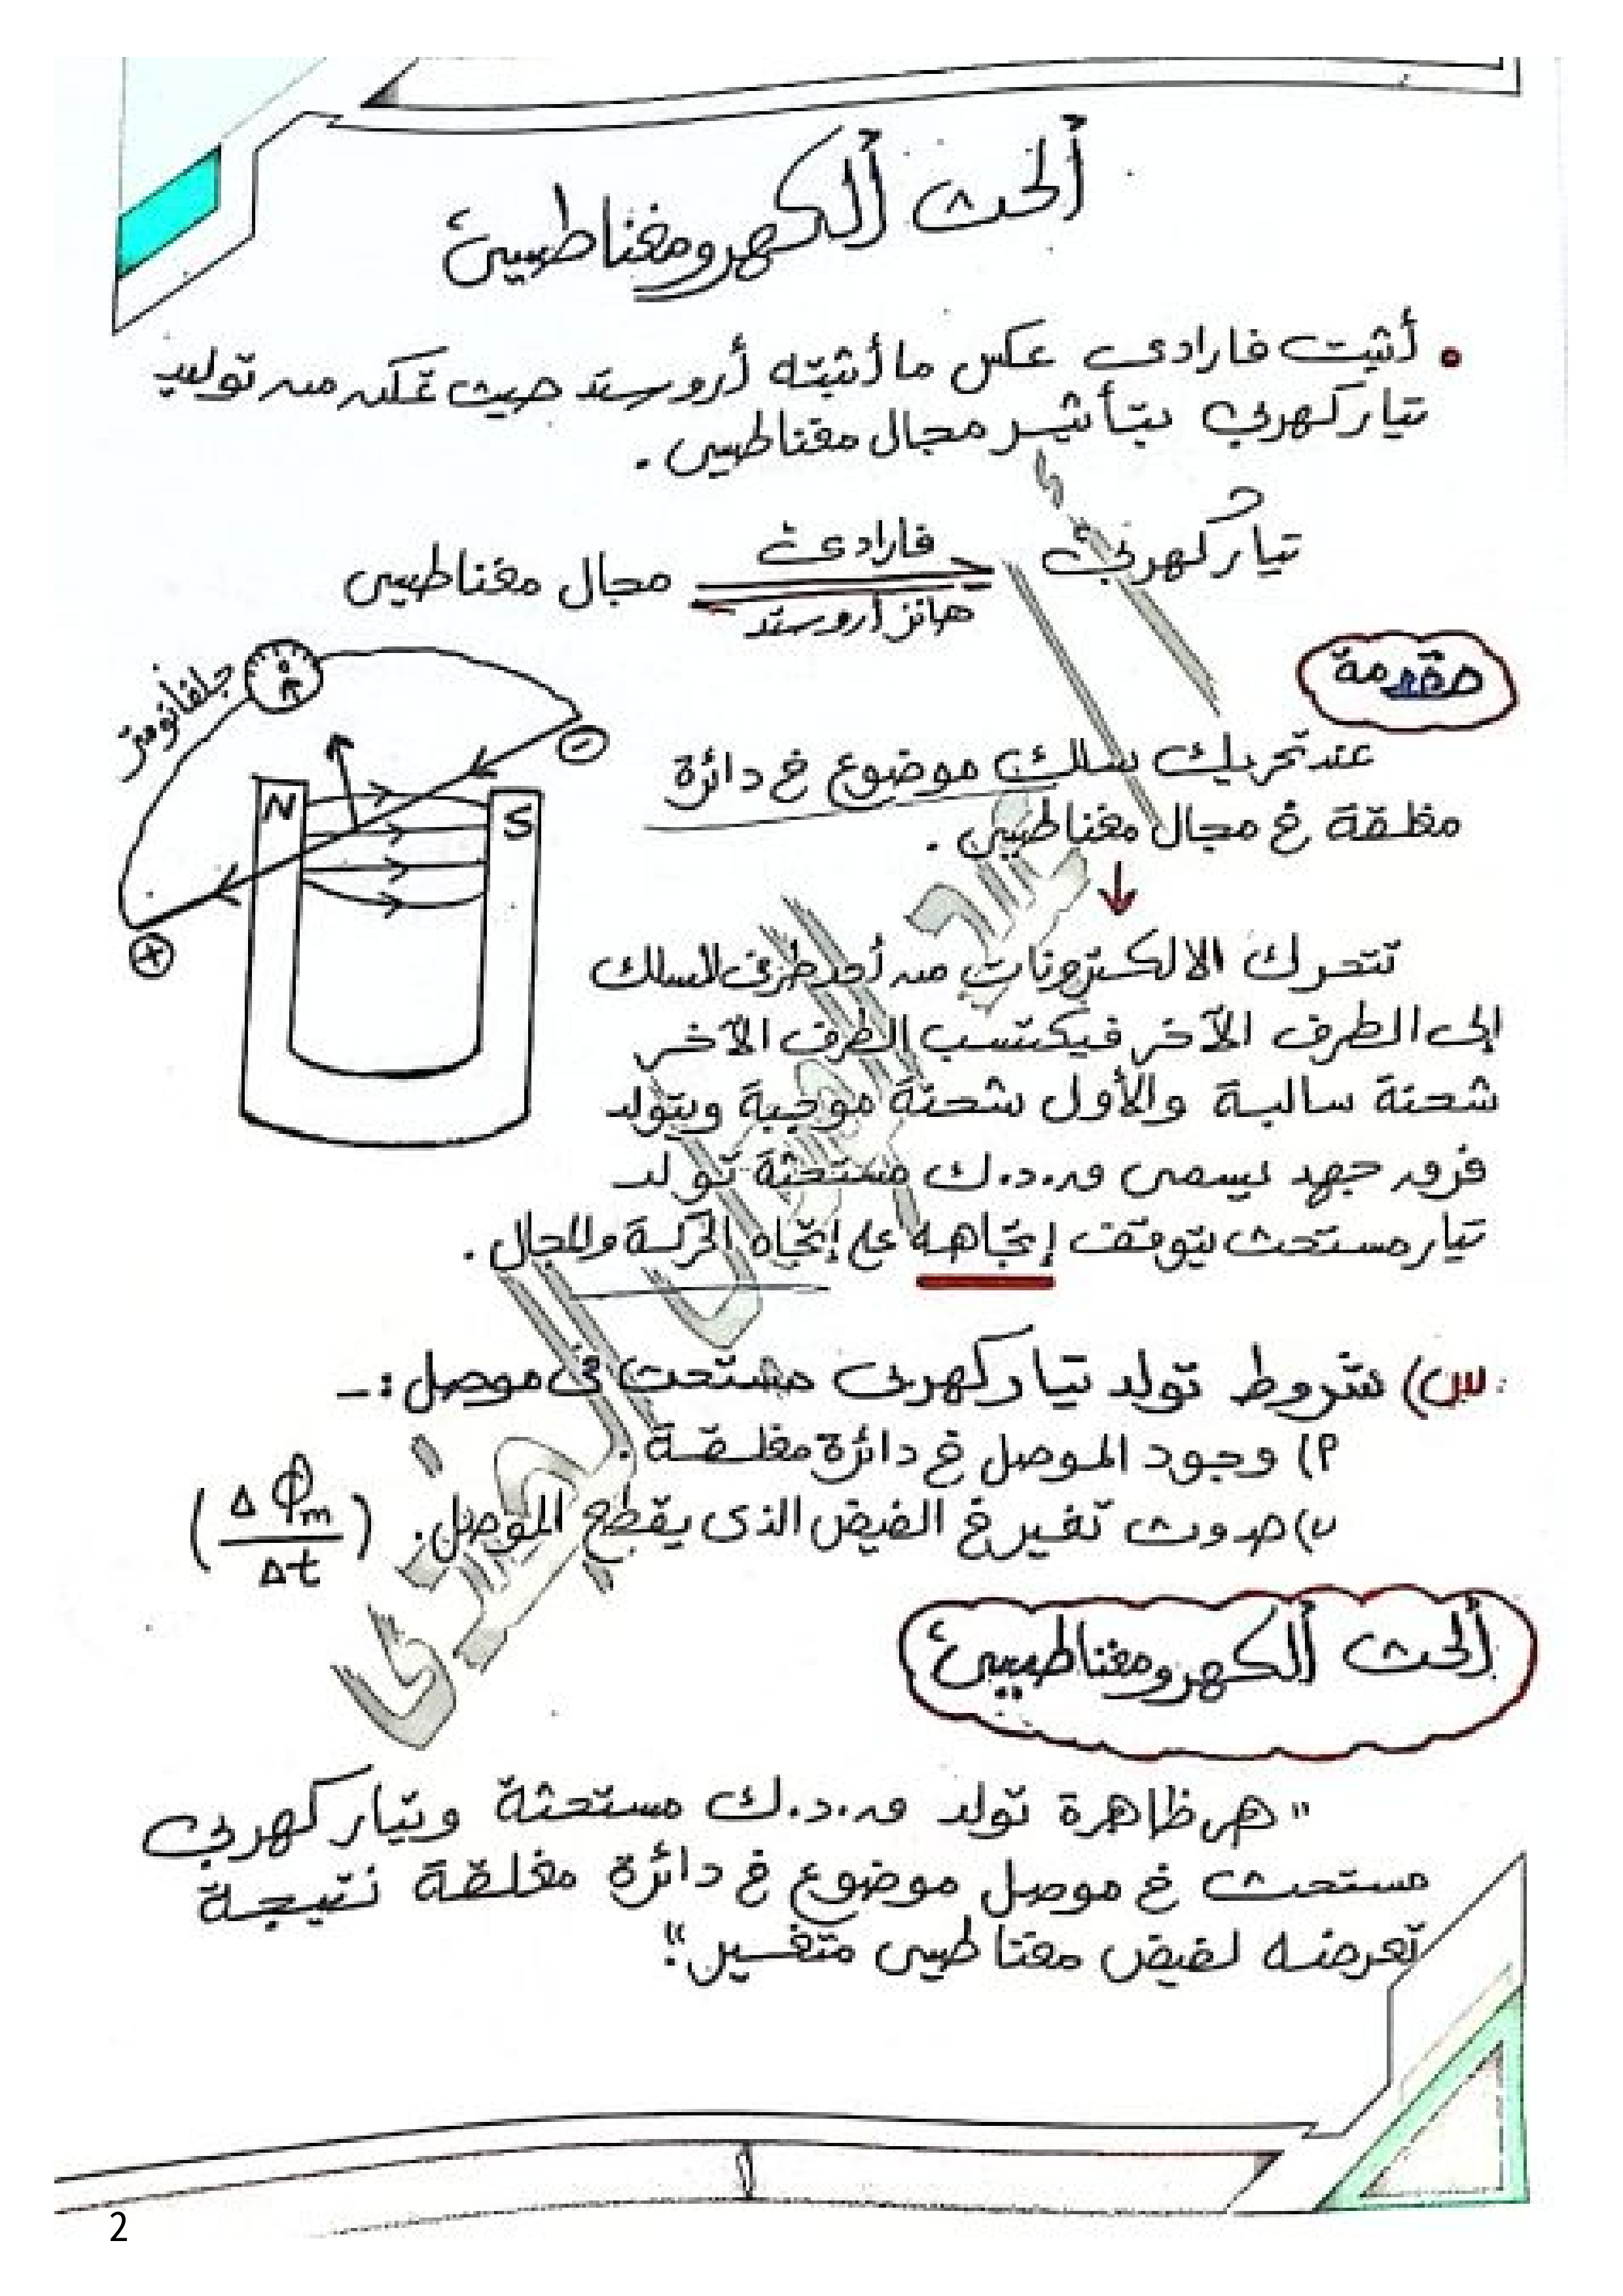 ألحث ألكهرومغناطيسى
• أثبت فارادى عكس ما أثبته أروستد حيث تمكن من توليد
تيار كهربى بتأثير مجال مغناطيسى .
تيار كهربى فارادى مجال مغناطيسى
هانز أروستد
مقدمة
جلفانومتر
عند تحريك سلك موضوع فى دائرة
مغلقة فى مجال مغناطيسى .
N S
تتحرك الالكترونات من أحد طرفى السلك
إلى الطرف الآخر فيكتسب الطرف الآخر
شحنة سالبة والأول شحنة موجبة ويتولد
فرق جهد يسمى ق.د.ك مستحثة تولد
تيار مستحث يتوقف إتجاهه على إتجاه الحركة والمجال .
س) شروط تولد تيار كهربى مستحث فى موصل :-
أ) وجود الموصل فى دائرة مغلقة .
ب) حدوث تغير فى الفيض الذى يقطع الموصل . (ΔΦm/Δt)
ألحث ألكهرومغناطيسى
"هى ظاهرة تولد ق.د.ك مستحثة وتيار كهربى
مستحث فى موصل موضوع فى دائرة مغلقة نتيجة
تعرضه لفيض مغناطيسى متغير".
١
2